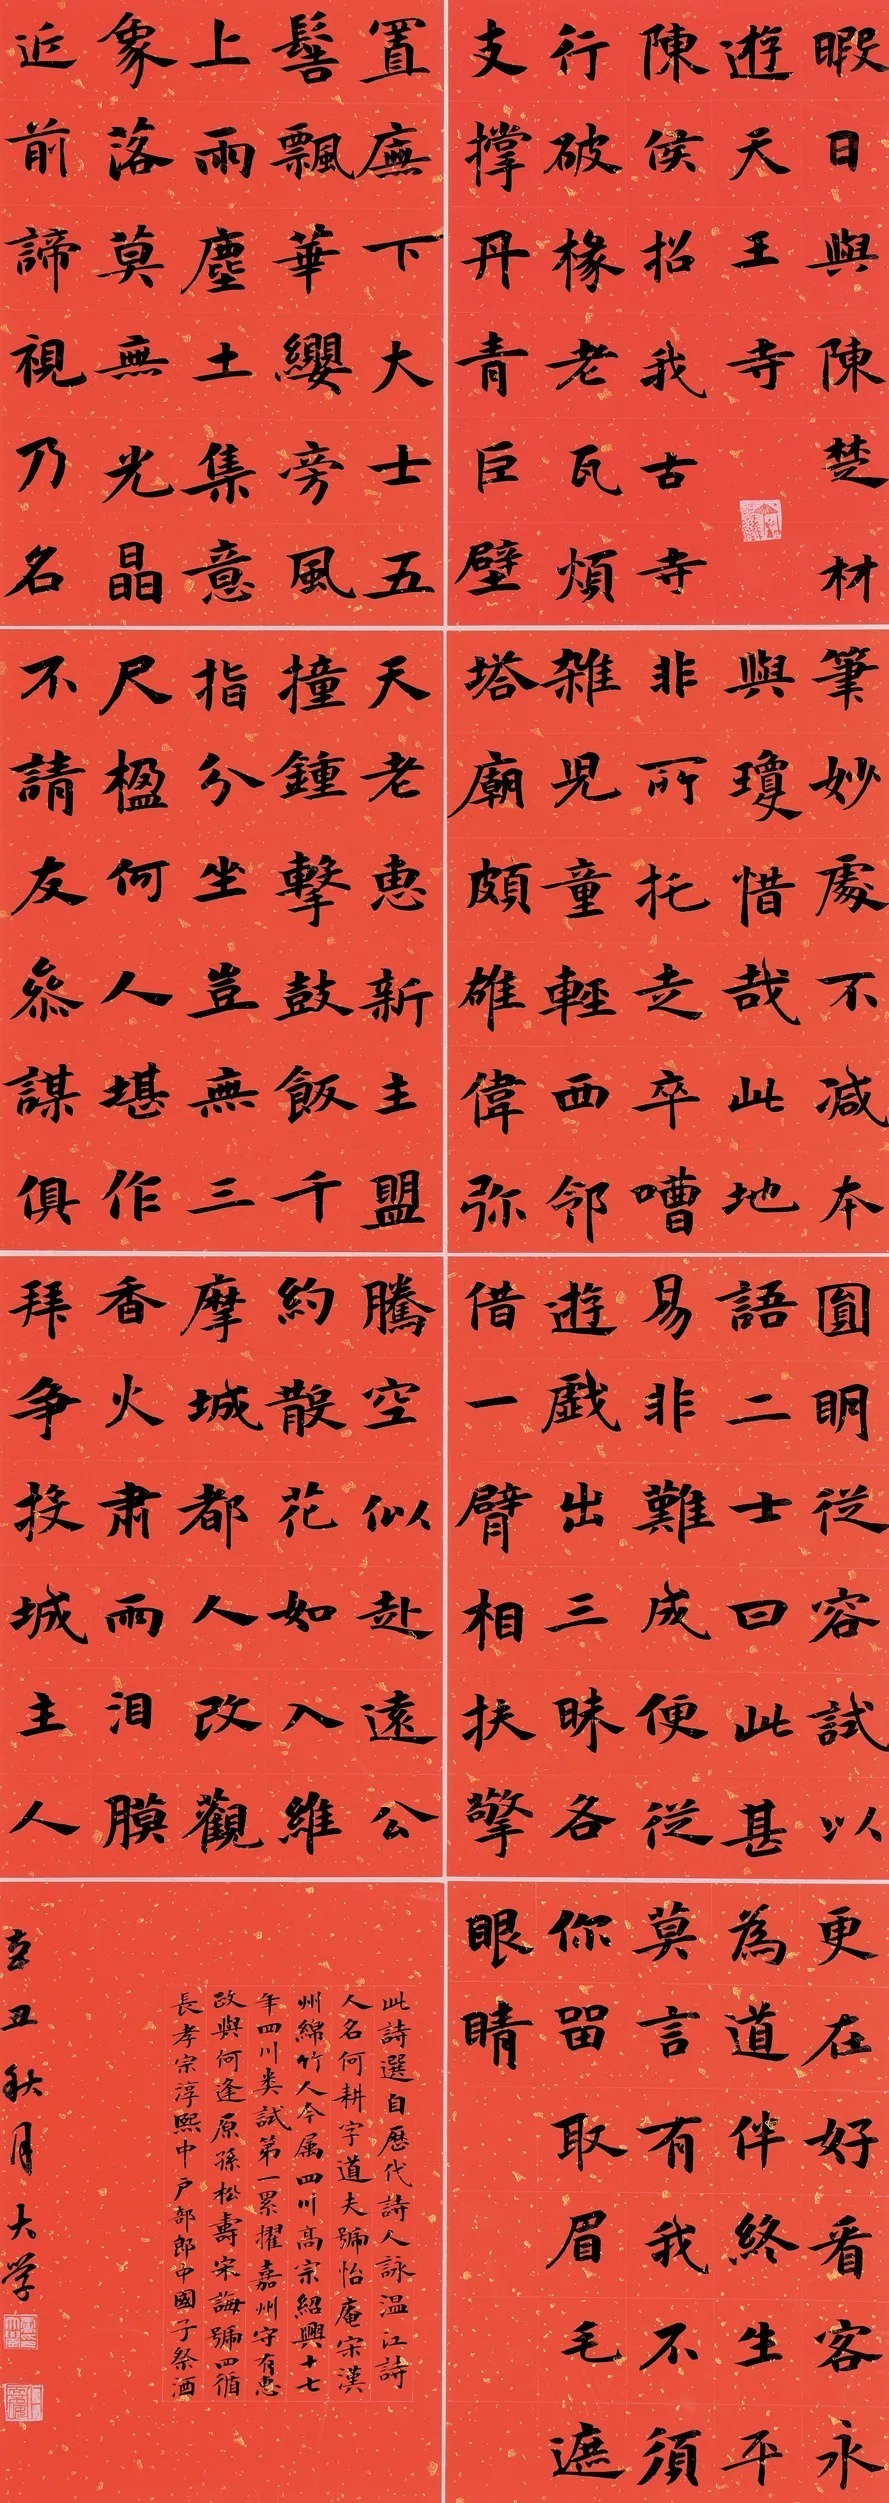 暇日與陳楚材
遊天王寺
陳侯招我古寺
行破椽老瓦煩
支撐丹青巨壁
置廡下大士五
髻飄華纓旁風
上雨塵土集意
象落莫無光晶
近前諦視乃名
筆妙處不減本
與瓊惜哉此地
非所托走卒嘈
雜兒童輕西邻
塔廟頗雄偉弥
天老惠新主盟
撞鍾擊鼓飯千
指分坐豈無三
尺楹何人堪作
不請友叅謀俱
圓明從容試以
語二士曰此甚
易非難成便從
遊戲出三昧各
借一臂相扶擎
騰空似赴遠公
約散花如入維
摩城都人改觀
香火肅雨泪膜
拜争投城主人
更在好看客永
為道伴終生平
莫言有我不須
你留取眉毛遮
眼睛
此詩選自歷代詩人詠温江詩
人名何耕字道夫號怡庵宋漢
州綿竹人今属四川高宗紹興十七
年四川类試第一累擢嘉州守有惠
政與何逢原孫松壽宋誨號四循
長孝宗淳熙中戶部郎中國子祭酒
辛丑秋月大学